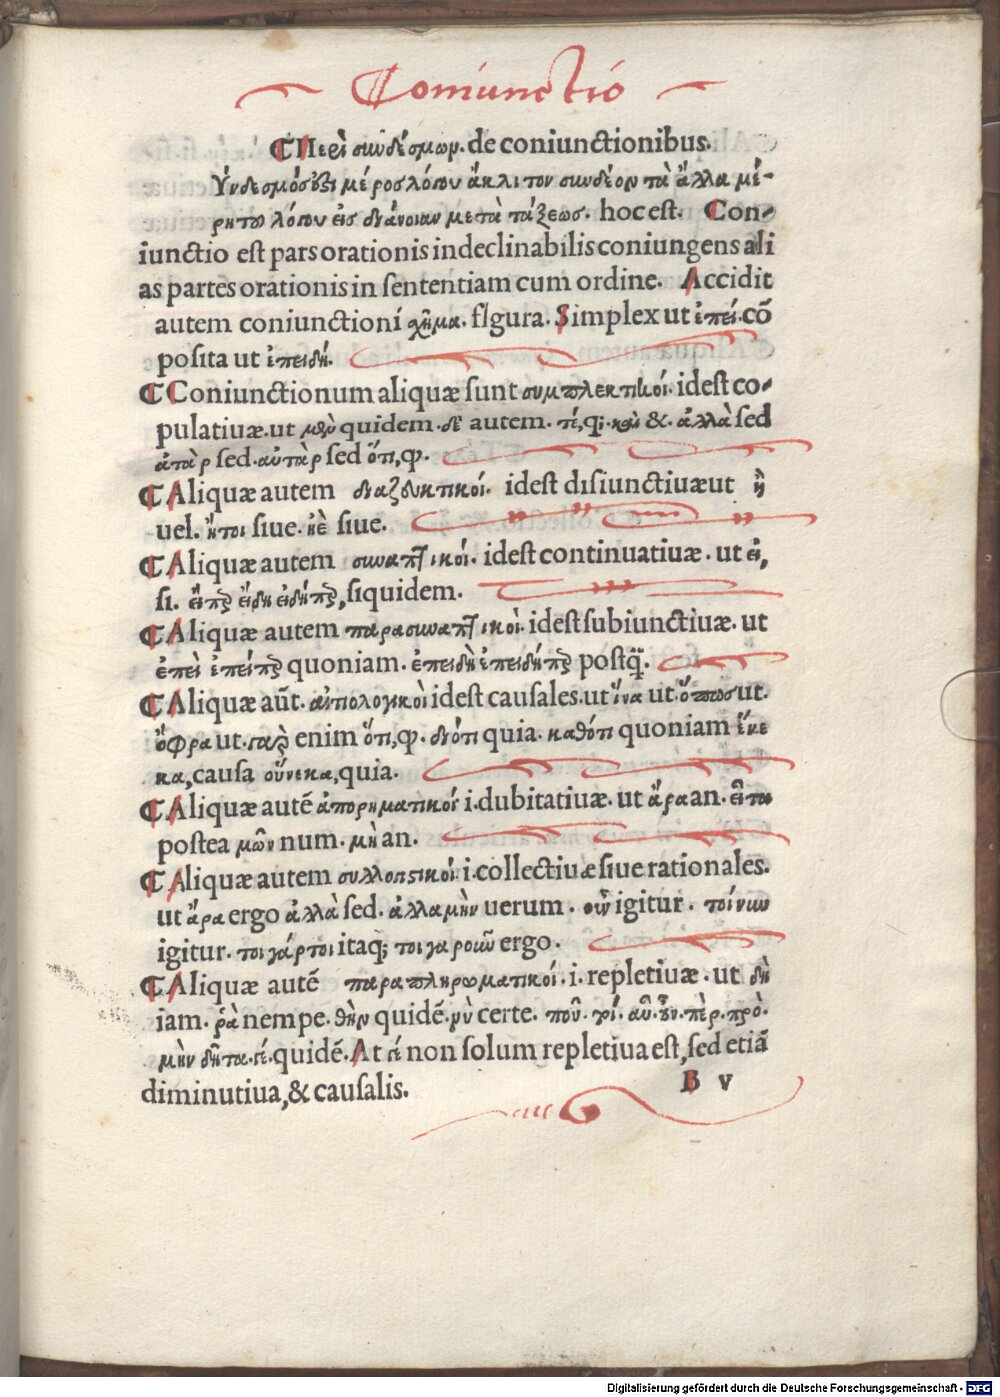 Coniunctio
¶Περὶ συνδέσμων. de coniunctionibus.
Ύνδεσμόσ ὄξι μέροσ λόγου ἄκλιτον συνδέον τὰ ἄλλα μέ-
ρη τῶ λόγου εἰσ διάνοιαν μετὰ τάξεωσ. hoc est. Con-
iunctio est pars orationis indeclinabilis coniungens ali
as partes orationis in sententiam cum ordine. Accidit
autem coniunctioni χῆμα. fIgura. Simplex ut ἐπεί. cō
posita ut ἐπειδή.
¶Coniunctionum aliquæ sunt συμπλεκτικοί. idest co-
pulatiuæ. ut μὲν quidem. δὲ autem. τέ, q; καὶ &. ἀλλὰ sed
ἀτὰρ sed. αὐτὰρ sed ὅτι, ꝙ.
¶Aliquæ autem διαζευκτικοί. idest disiunctiuæ ut ἢ
uel. ἤτοι siue. ἠὲ siue.
¶Aliquæ autem συναπτικοί. idest continuatiuæ. ut εἰ,
si. εἴπερ εἰδὴ εἰδήπερ, siquidem.
¶Aliquæ autem παρασυναπτικοὶ. idest subiunctiuæ. ut
ἐπεὶ ἐπείπερ quoniam. ἐπειδὴ ἐπειδήπερ postq̄.
¶Aliquæ aūt. αἰτιολογικοὶ idest causales. ut ἵνα ut. ὅπωσ ut.
ὄφρα ut. γαρ enim ὅτι, ꝙ. διότι quia. καθότι quoniam ἕνε
κα, causa οὕνεκα, quia.
¶Aliquæ autē ἀπορηματικοί i. dubitatiuæ. ut ἄρα an. εἶτα
postea μῶν num. μὴ an.
¶Aliquæ autem συλλογιστικοί i. collectiuæ siue rationales.
ut ἄρα ergo ἀλλὰ sed. ἀλλαμὴν uerum. οὖν igitur. τοίνυν
igitur. τοιγάρτοι itaq; τοιγαροῦν ergo.
¶Aliquæ autē παραπληρωματικοί. i. repletiuæ. ut δὴ
iam. ῥὰ nempe. θὴν quidē. νὺ certe. ποῦ. τοί. αὖ. οὖν. πὲρ. πρὸ.
μὴν δῆτα. γέ. quidē. At γέ non solum repletiua est, sed etiā
diminutiua, & causalis.
B v
Digitalisierung gefördert durch die Deutsche Forschungsgemeinschaft - DFG